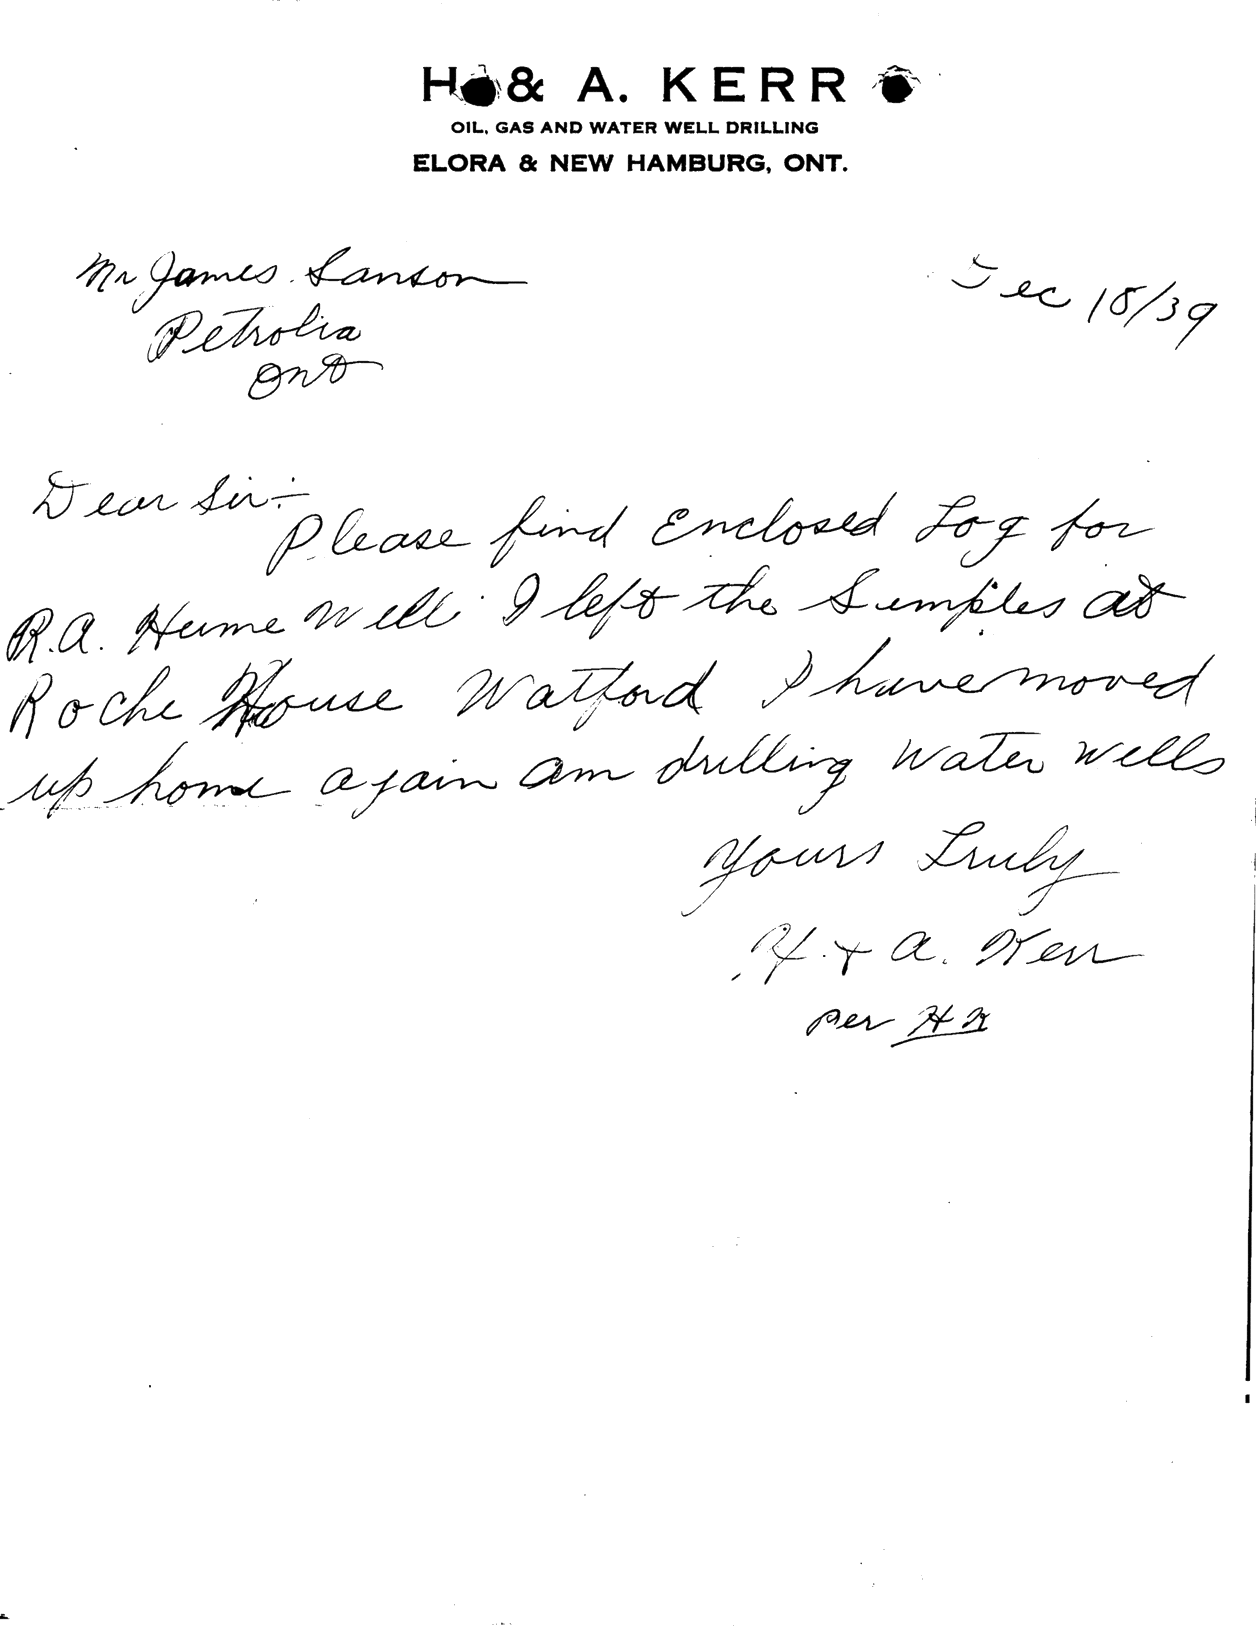 H. & A. KERR
OIL, GAS AND WATER WELL DRILLING
ELORA & NEW HAMBURG, ONT.
Dec 18/39
Mr James Sanson
Petrolia
Ont
Dear Sir:-
Please find Enclosed Log for
R.A. Hume Well I left the Samples at
Roche House Watford I have moved
up home again am drilling Water Wells
Yours Truly
H. + A. Kerr
per HK